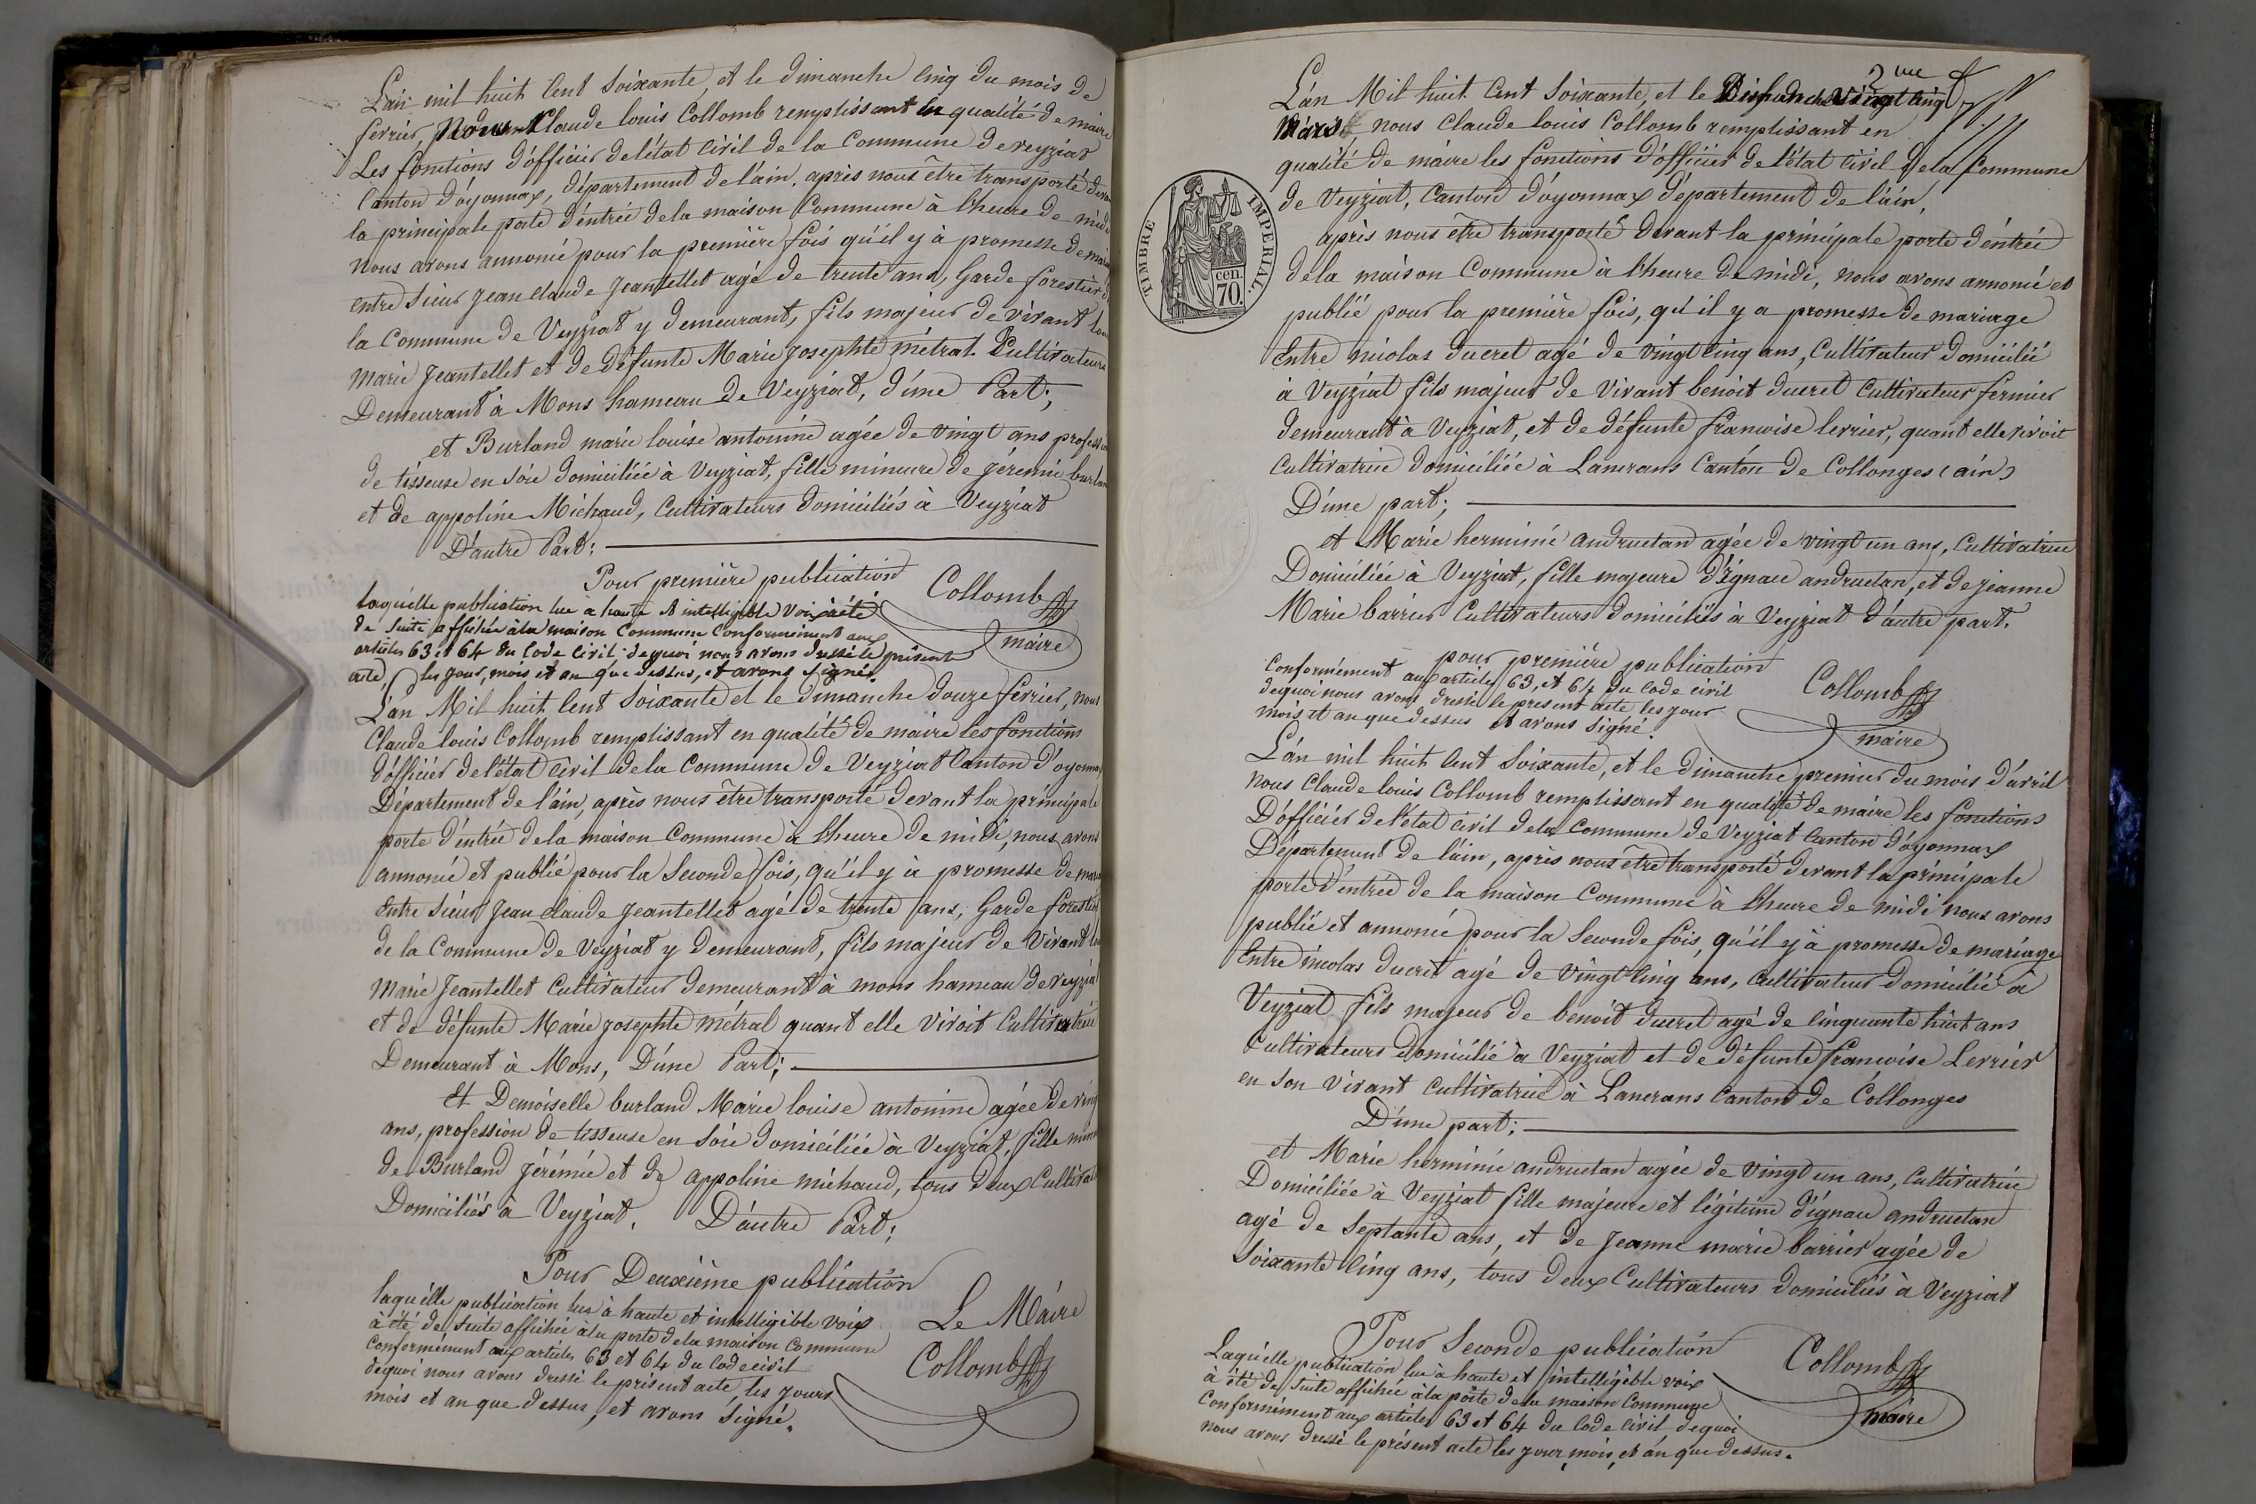 L'an mil huit Cent Soixante, et le dimanche cinq du mois de
fevrier, Nous Claude louis Collomb remplissant en qualité de maire
Les fonctions d'officier de l'état Civil de la Commune de veyziat
Canton d'oyonnax, département de l'ain, après nous être transporté devant
la principale porte d'entrée de la maison Commune à l'heure de midi
nous avons annoncé pour la première fois qu'il y à promesse de
entre Sieur Jean claude Jeantellet agé de trente ans, Garde forestier
la Commune de Veyziat y demeurant, fils majeur de vivant
Marie Jeantellet et de Défunte Marie Josephte métral. Cultivateurs
Demeurant à Mons hameau de Veyziat, d'une Part;
et Burland marie louise antonine agée de vingt ans
de tisseuse en Soie domiciliée à Veyziat, fille mineure de jérémie
et de appoline Michaud, Cultivateurs domiciliés à Veyziat
D'autre Part:
Pour première publication
Collomb
maire
laquelle publication lue a haute et intelligible voix a été
de Suite affichée à la maison Commune Conformément aux
articles 63 et 64 du Code Civil dequoi nous avons dressé le présent
acte, les jour, mois et an que dessus, et avons Signé.
L'an Mil huit Cent Soixante et le dimanche douze fevrier, nous
Claude louis Collomb remplissant en qualité de maire les fonctions
d'officier de l'état Civil de la Commune de Veyziat Canton d'oyonnax
Département de l'ain, après nous être transporté devant la principale
porte d'entrée de la maison Commune à l'heure de midi, nous avons
annoncé et publié pour la Seconde fois, qu'il y à promesse de
Entre Sieur Jean claude Jeantellet agé de trente ans, Garde forestier
de la Commune de Veyziat y Demeurant, fils majeur de Vivant
Marie Jeantellet Cultivateur demeurant à mons hameau de veyziat
et de défunte Marie josephte métral quant elle Vivoit Cultivatrice
Demeurant à Mons, D'une Part;
Et Demoiselle burland Marie louise antonine agée de
ans, profession de tisseuse en Soie domiciliée à Veyziat, fille
de Burland Jérémie et de appoline michaud, tous deux
Domiciliés à Veyziat. D'autre Part;
Pour Deuxième publication
Le Maire
Collomb
laquelle publication lue à haute et intelligible voix
à été de Suite affichée à la porte de la maison Commune
Conformément aux articles 63 et 64 du Code civil
dequoi nous avons dressé le présent acte, les jours
mois et an que dessus, et avons Signé.
2me
L'an Mil huit Cent Soixante, et le Dimanche Vingt Cinq
Mars, nous Claude louis Collomb remplissant en
qualité de maire les fonctions d'officier de l'état Civil de la Commune
de Veyziat, Canton d'oyonnax département de l'ain,
TIMBRE IMPERIAL.
cen.
70.
après nous être transporté devant la principale porte d'entrée
de la maison Commune à l'heure de midi, nous avons annoncé et
publié pour la première fois, qu'il y a promesse de mariage
Entre nicolas ducret agé de vingt cinq ans, Cultivateur domicilié
à Veyziat fils majeur de Vivant benoit ducret Cultivateur fermier
demeurant à Veyziat, et de défunte francoise lerrier, quant elle vivoit
Cultivatrice domiciliée à Lancrans Canton de Collonges (ain)
D'une part;
et Marie herminie andruetan agée de vingt un ans, Cultivatrice
Domiciliée à Veyziat, fille majeure d'ignace andruetan, et de jeanne
Marie barrier Cultivateurs domiciliés à Veyziat d'autre part.
pour première publication
Collomb
maire
Conformément aux articles 63, et 64 du Code civil
dequoi nous avons dressé le present acte les jour
mois et an que dessus et avons Signé.
L'an mil huit Cent Soixante, et le dimanche premier du mois d'avril
nous Claude louis Collomb remplissant en qualité de maire les fonctions
D'officier de l'état civil de la Commune de Veyziat Canton d'oyonnax
Département de l'ain, après nous être transporté devant la principale
porte d'entrée de la maison Commune à l'heure de midi nous avons
publié et annoncé pour la Seconde fois, qu'il y à promesse de mariage
Entre nicolas ducret agé de vingt cinq ans, Cultivateur domicilié à
Veyziat fils majeur de benoit ducret agé de cinquante huit ans
Cultivateurs domicilié à Veyziat et de défunte francoise Lerrier
en Son Vivant Cultivatrice à Lancrans Canton de Collonges
D'une part;
et Marie herminie andruetan agée de vingt un ans, Cultivatrice
Domiciliée à Veyziat fille majeure et légitime d'ignace andruetan
agé de Septante ans, et de Jeanne marie barrier agée de
Soixante Cinq ans, tous deux Cultivateurs domiciliés à Veyziat
Pour Seconde publication
Collomb
maire
Laquelle publication lue à haute et intelligible voix
à été de Suite affichée à la porte de la maison Commune
Conformément aux articles 63 et 64 du Code Civil, dequoi
nous avons dressé le présent acte les jour, mois, et an que dessus.